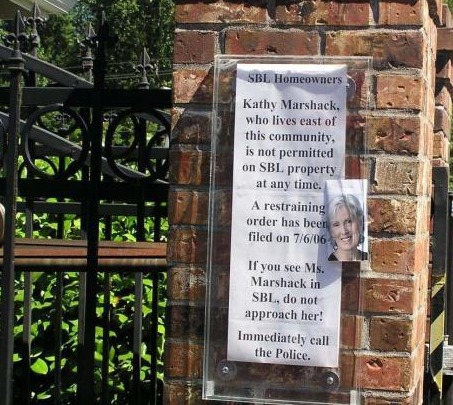 SBL Homeowners
Kathy Marshack,
who lives east of
this community,
is not permitted
on SBL property
at any time.
A restraining
order has been
filed on 7/6/06
If you see Ms.
Marshack in
SBL, do not
approach her!
Immediately call
the Police.